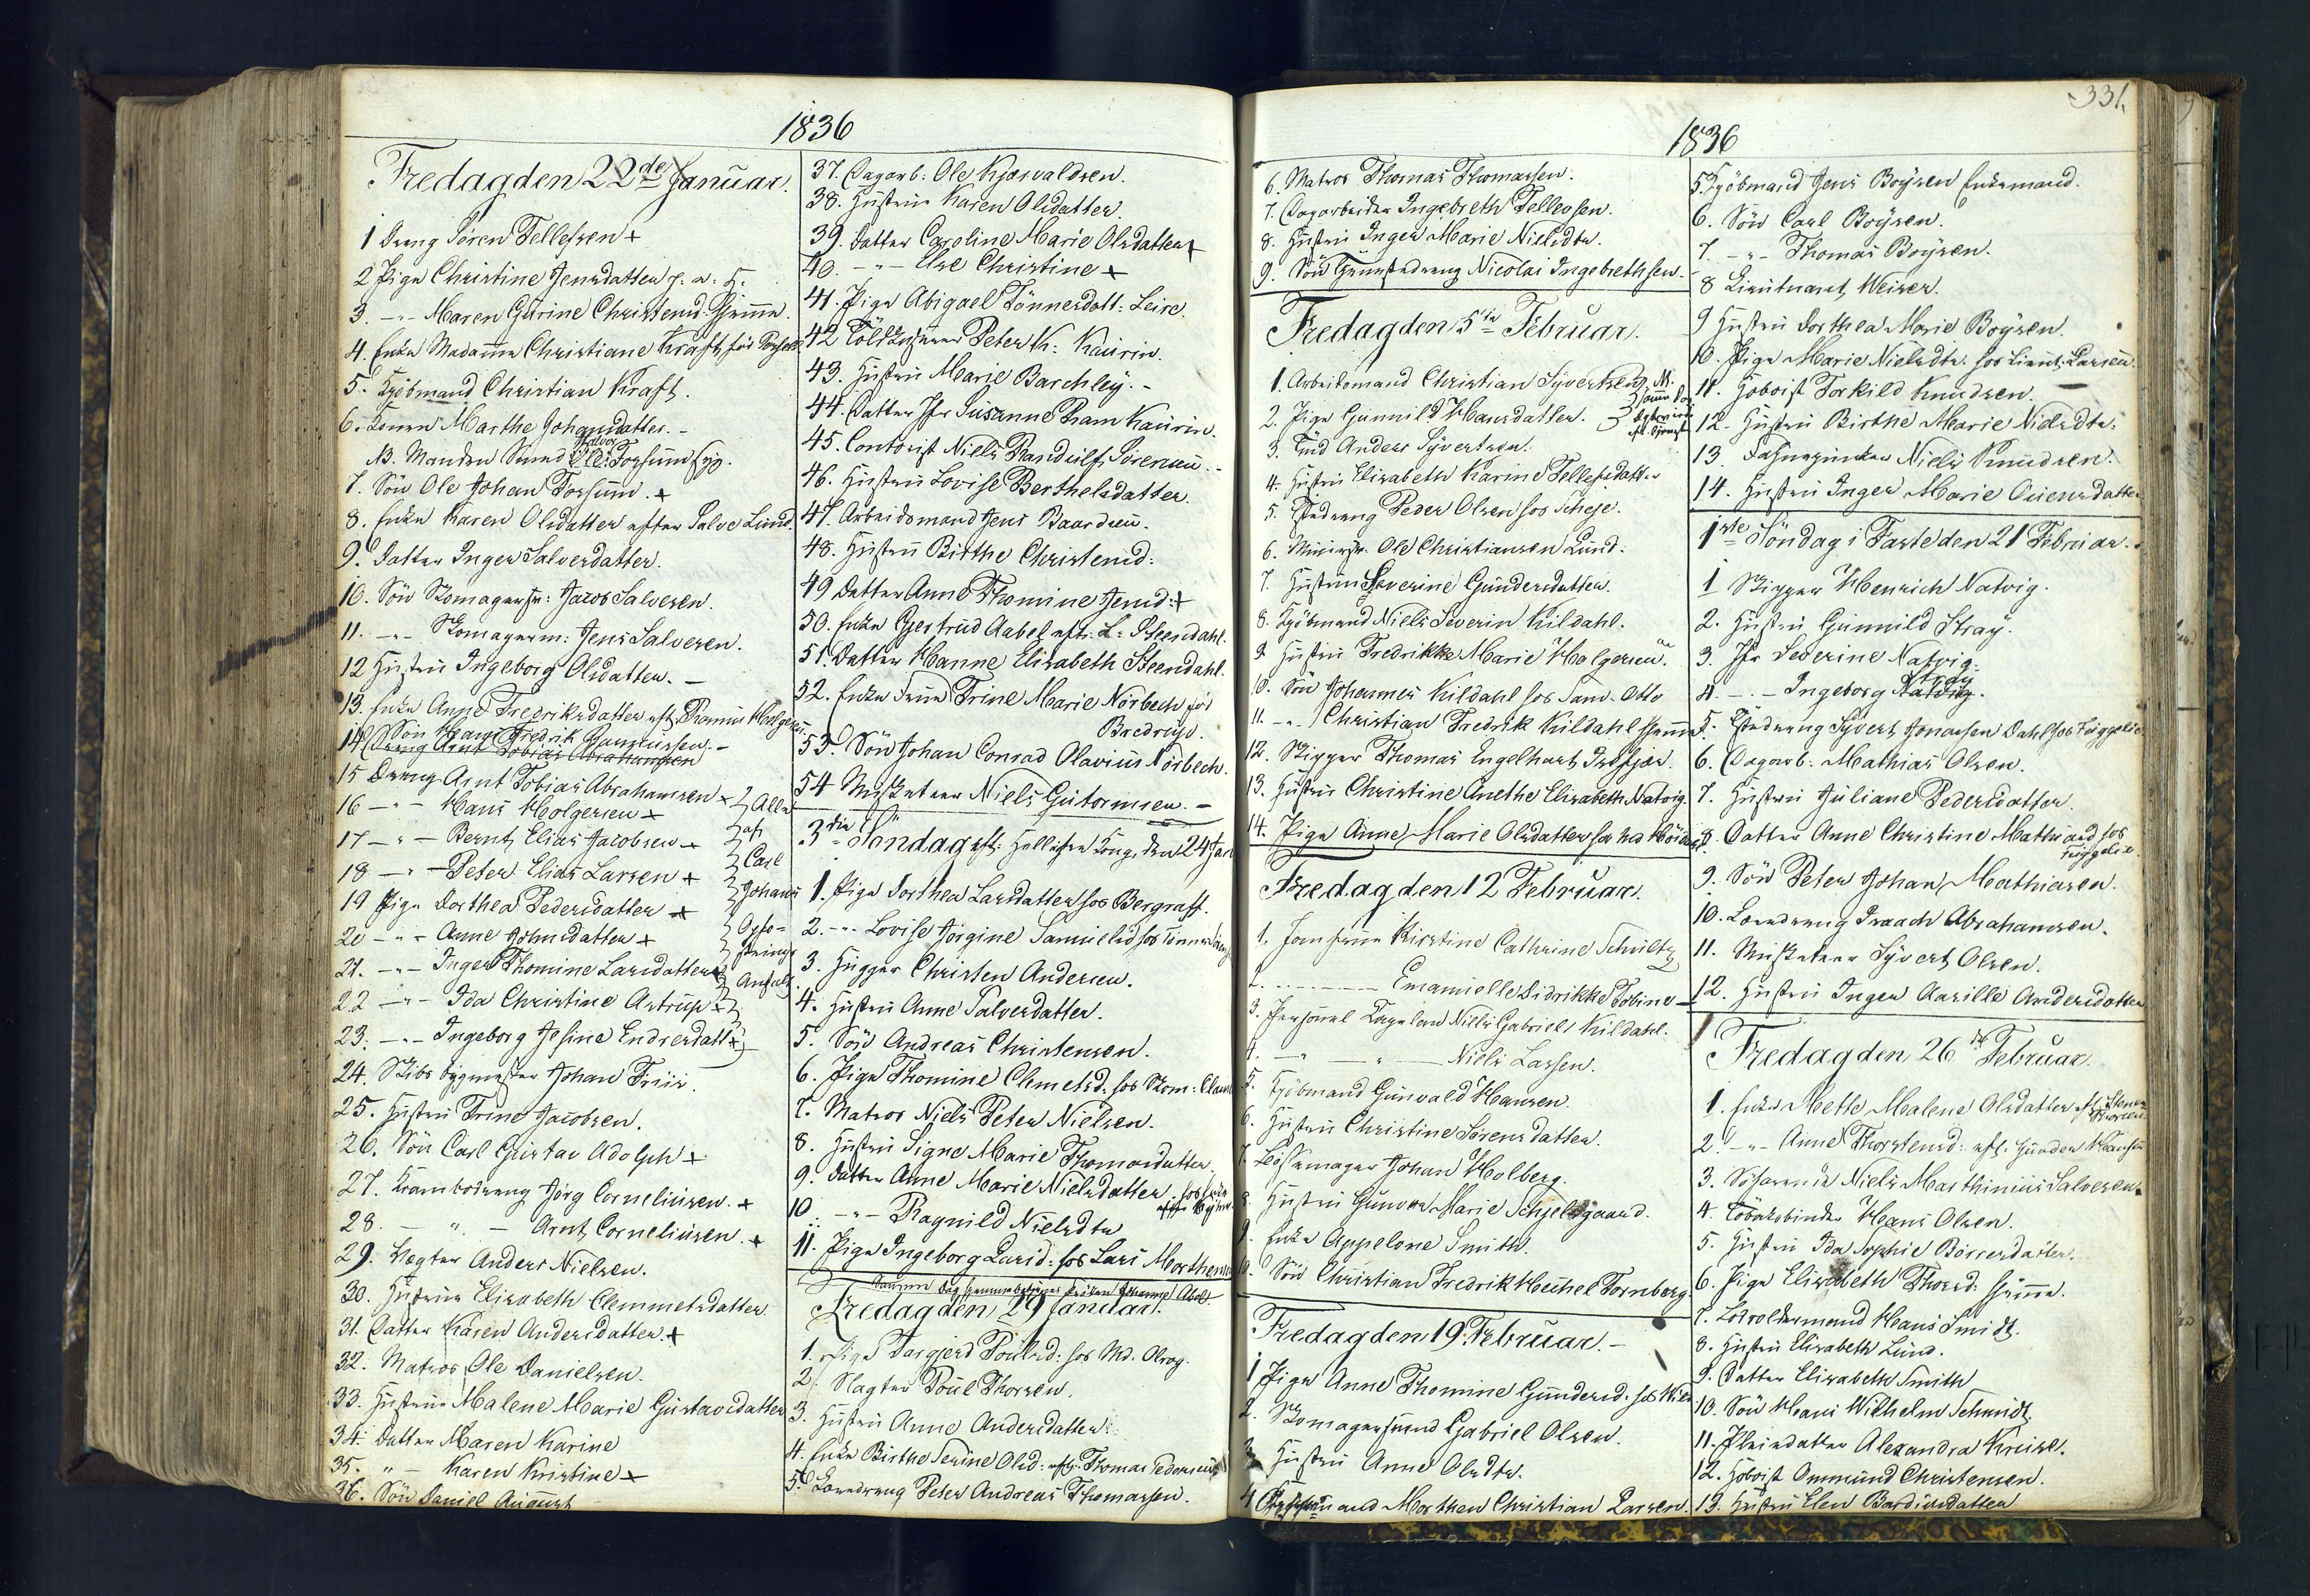 1836
Fredag den 22de Januar.
1 Dreng Sören Tellefsen +
2 Pige Christine Jensdatter
3. -"- Maren Gurine Christensd. Hjemme.
4. Enke Madamme Christiane Kraft
5. Kjöbmand Christian Kraft.
6. Konen Marthe Johansdatter. -
NB. Manden Torsund syg.
7. Sön Ole Johan Torsund. +
8. Enke Karen Olsdatter efter Salve Lund.
9. Datter Inger Salvesdatter.
10. Sön Skomagersv: Jacob Salvesen.
11. -"- Skomagerm: Jens Salvesen.
12 Hustru Ingeborg Olsdatter. -
13. Enke Anne Fredriksdatter eft. Rasmus Holgersen
14 Sön Hans Fredrik Rasmussen. -
Dreng Arnt Tobias Abrahamsen
15 Dreng Arnt Tobias Abrahamsen +
16 -"- Hans Holgersen +
17 -"- Bernt Elias Jacobsen +
18 -"- Peter Elias Larsen +
19 Pige Dorthea Pedersdatter +
20 -"- Anne Johnsdatter +
21. -"- Inger Thomine Larsdatter +
22 -"- Ida Christine Astrup +
23. -"- Ingeborg Jesine Endresdatt +
Alle af Carl Johans Opfostrings Anstalt
24. Skibsbygmester Johan Friis.
25. Hustru Trine Jacobsen.
26. Sön Carl Gustav Adolph +
27. Krambodreng Jörg Corneliusen. +
28. - " - Arnt Corneliusen. +
29. Vægter Anders Nielsen.
30. Hustrue Elisabeth Clemmetsdatter
31. Datter Karen Andersdatter. +
32. Matros Ole Danielsen.
33. Hustrue Malene Marie Gustavsdatter
34. Datter Maren Karine
35. " - Karen Kristine +
36. Sön Daniel August
37. Dagarb: Ole Kjosvaldsen.
38. Hustrue Karen Olsdatter.
39. Datter Caroline Marie Olsdatter +
40. -"- Else Christine +
41. Pige Abigael Tönnesdatt. Leire.
42 Peter K: Kaurin.
43. Hustru Marie Barchley. -
44. Datter Jfr Susanne Pram Kaurin.
45. Contorist Niels Randulf Sörensen. -
46. Hustru Lovise Berthelsdatter.
47. Arbeidsmand Jens Baardsen.
48. Hustru Birthe Christensd:
49 Datter Anne Thomine Jensd: +
50. Enke Gjertrud Aabel eft: L: Steendahl.
51. Datter Hanne Elisabeth Steendahl.
52. Enke Trine Marie Nörbech föd
Bredrup.
53. Sön Johan Conrad Olavius Nörbech.
54 Musketeer Niels Gutormsen. -
3die Söndag eft: Hellig 3 Kong. den 24 Jan
1. Pige Dorthea Larsdatter hos Bergraff.
2. -"- Lovise Jörgine Samuelsd hos
3. Hugger Christen Andersen.
4. Hustru Anne Salvesdatter.
5. Sön Andreas Christensen.
6. Pige Thomine Clmetsd. hos Skom:
7. Matros Niels Peter Nielsen.
8. Hustru Signe Marie Thomasdatter.
9. Datter Anne Marie Nielsdatter
10. -"- Ragnild Nielsdtr
11. Pige Ingeborg Larsd: hos Lars Morthensen
Fredag den 29 Januar.
1. Pige Targjerd Poulsd: hos Md. Olrog.
2. Slagter Poul Thorsen.
3. Hustru Anne Andersdatter.
4. Enke Birthe Serine Olsd: eft. Thomas Pedersen
5. Læredreng Peter Andreas Thomassen.
331.
1836
6. Matros Thomas Thomassen.
7. Dagarbeider Ingebreth Tellefsen.
8. Hustru Inger Marie Nielsdtr.
9. Sön Nicolai Ingebrethsen.
Fredag den 5te Februar.
1. Arbeidsmand Christian Syvertsen
2. Pige Gunnild Hansdatter.
3. Anders Syvertsen.
4. Hustru Elisabeth Karine Tellefsdatter
5. Peder Olsen hos Scheje.
6. Ole Christiansen Lund.
7. Hustrue Severine Gundersdatter.
8. Kjöbmand Niels Severin Kildahl.
9 Hustru Fredrikke Marie Holgersen.
10. Sön Johannes Kildahl hos
11. -"- Christian Fredrik Kildahl hjemme
12. Skipper Thomas Engelhart
13. Hustru Christine Anethe Elisabeth Natvig.
14. Pige Anne Marie Olsdatter hos Md
Fredag den 12 Februar.
1. Jomfrue Kirstine Cathrine Schultz
2. Emanuelle Didrikke Tobine -
3. Personel Capelan Niels Gabriel Kildahl.
4. - " - Niels Lassen.
5. Kjöbmand Gunvald Hansen.
6. Hustru Christine Sörensdatter.
7. Bössemager Johan Holberg.
8. Hustru Gunvor Marie Schjelsgaard.
9. Enke Appelone Smith.
10. Sön Christian Fredrik Henchel Tornberg
Fredag den 19 Februar. -
1 Pige Anne Thomine Gundersd. hos
2. Skomagersvend Gabriel Olsen.
3 Hustru Anne Olsdtr.
4 Morthen Christian Larsen.
1836
5. Kjöbmand Jens Boysen Enkemand.
6. Sön Carl Boysen.
7. -"- Thomas Boysen.
8 Lieutnant Weiser.
9 Hustru Dorthea Marie Boysen.
10. Pige Marie Nielsdtr. hos Lieut. Larsen.
11. Hoboist Torkild Knudsen.
12. Hustru Birthe Marie Nielsdtr.
13. Niels Knudsen.
14. Hustru Inger Marie Ouensdatter
1ste Söndag i Faste den 21 Februar.
1 Skipper Henrich Natvig.
2. Hustru Gunnild Stray.
3. Jfr Severine Natvig.
4. -"- Ingeborg Stray.
5. Syvert Jonassen Dahl hos Fuggelie
6. Dagarb: Mathias Olsen.
7. Hustru Juliane Pedersdatter.
8. Datter Anne Christine Mathiasd hos
Fuggelie.
9. Sön Peter Johan Mathiasen.
10. Læredreng Isaach Abrahamsen.
11. Musketeer Syvert Olsen.
12. Hustru Inger Aasille Andersdatter
Fredag den 26de Februar.
1. Enke Mette Malene Olsdatter eft. Stener
Thorsen
2. -"- Anne Thorstensd: eft. Gunder Hansen
3. Niels Marthinius Salvesen.
4. Hans Olsen.
5. Hustru Ida Sophie Börresdatter.
6. Pige Elisabeth Thorsd: hjemme.
7. Hans Smidt.
8. Hustru Elisabeth Lund.
9. Datter Elisabeth Smith
10. Sön Hans Wilhelm Schmidt.
11. Pleiedatter Alexandra Kruse.
12. Hoboist Ommund Christensen.
13. Hustru Elen Bardinsdatter